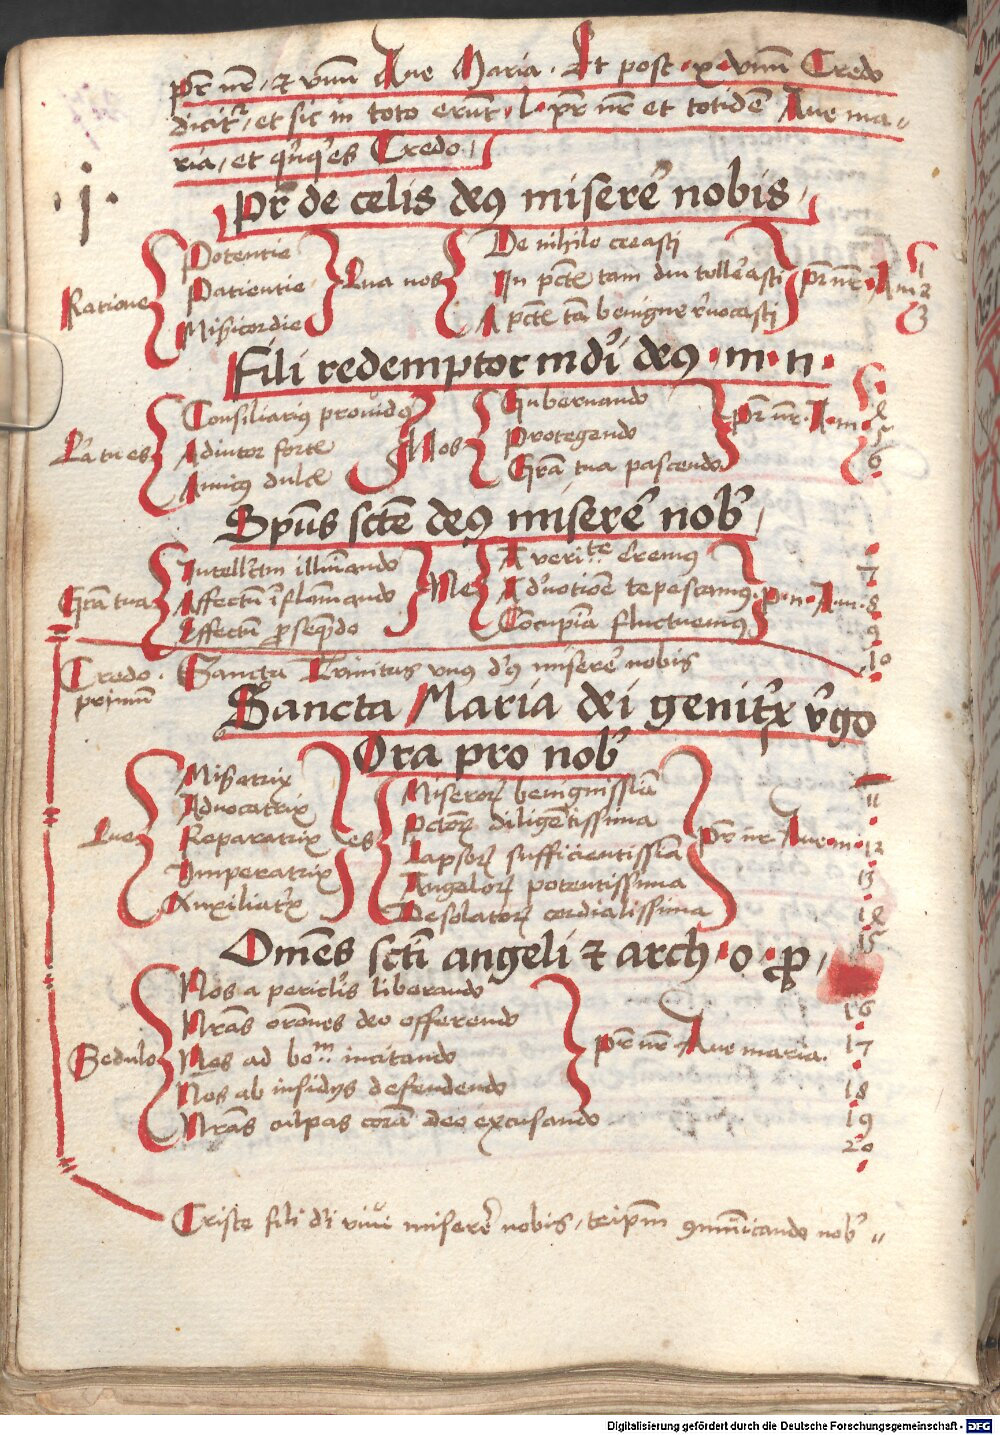 pr̄ nr̄, et vnū Aue Maria. Et post .x. vnū Credo
dicit᷑, et sic in toto erūt .l. pr̄ nr̄ et totidē Aue ma-
ria, et q'nq'es Credo,
.j.
Pr̄ de celis deꝰ miserē nobis,
Ratione
Potentie
Patientie
Misericordie
Qua nos
De nihilo creasti
In pctīs tam diu tollerasti
A pctīs tā benigne reuocasti
pr̄ nr̄. A m
1
2
3
Fili redemptor mūdi deꝰ . m . n .
Qr̄ tu es
Consiliariꝰ prouidꝰ
Adiutor fortis
Amicꝰ dulcis
Nos
Gubernando
Protegendo
Grā tua pascendo
pr̄ nr̄. A. m.
4
5
6
Spūs sctē deꝰ miserē nob᷑,
Grā tua
Intellctm illuīando
Affectū īflāmando
Effectū ꝓseqēdo
Ne
A veri.te erremꝰ
A deuotiōe tepescamꝰ.
Cōcupīa fluctuemꝰ
p. n. A. m.
7
8
9
10
Credo.
primū
Sancta Trinitas vnꝰ dꝰ miserē nobis
Sancta Maria dei genitx v᷑go
Ora pro nob᷑
Que
Miseratrix
Aduocatrix
Reparatrix
Imperatrix
Auxiliatx
es
Miseroꝝ benignissīa
Pctōꝝ diligētissima
Lapsoꝝ sufficientissīa
Angeloꝝ potentissima
Desolatoꝝ cordialissima
pr̄ nr̄ Aue. m.
11
12
13
14
15
Om̄es sctī angeli et arch. o. ꝓ,
Sedulo
Nos a periclis liberando
Nrās orōnes deo offerendo
Nos ad bo.m incitando
Nos ab insidijs defendendo
Nrās culpas corā deo excusando
pr̄ nr̄ Aue maria.
16
17
18
19
20
Criste fili dī viui miserē nobis, teipsm ꝯmūicando nob᷑ "
Digitalisierung gefördert durch die Deutsche Forschungsgemeinschaft - DFG